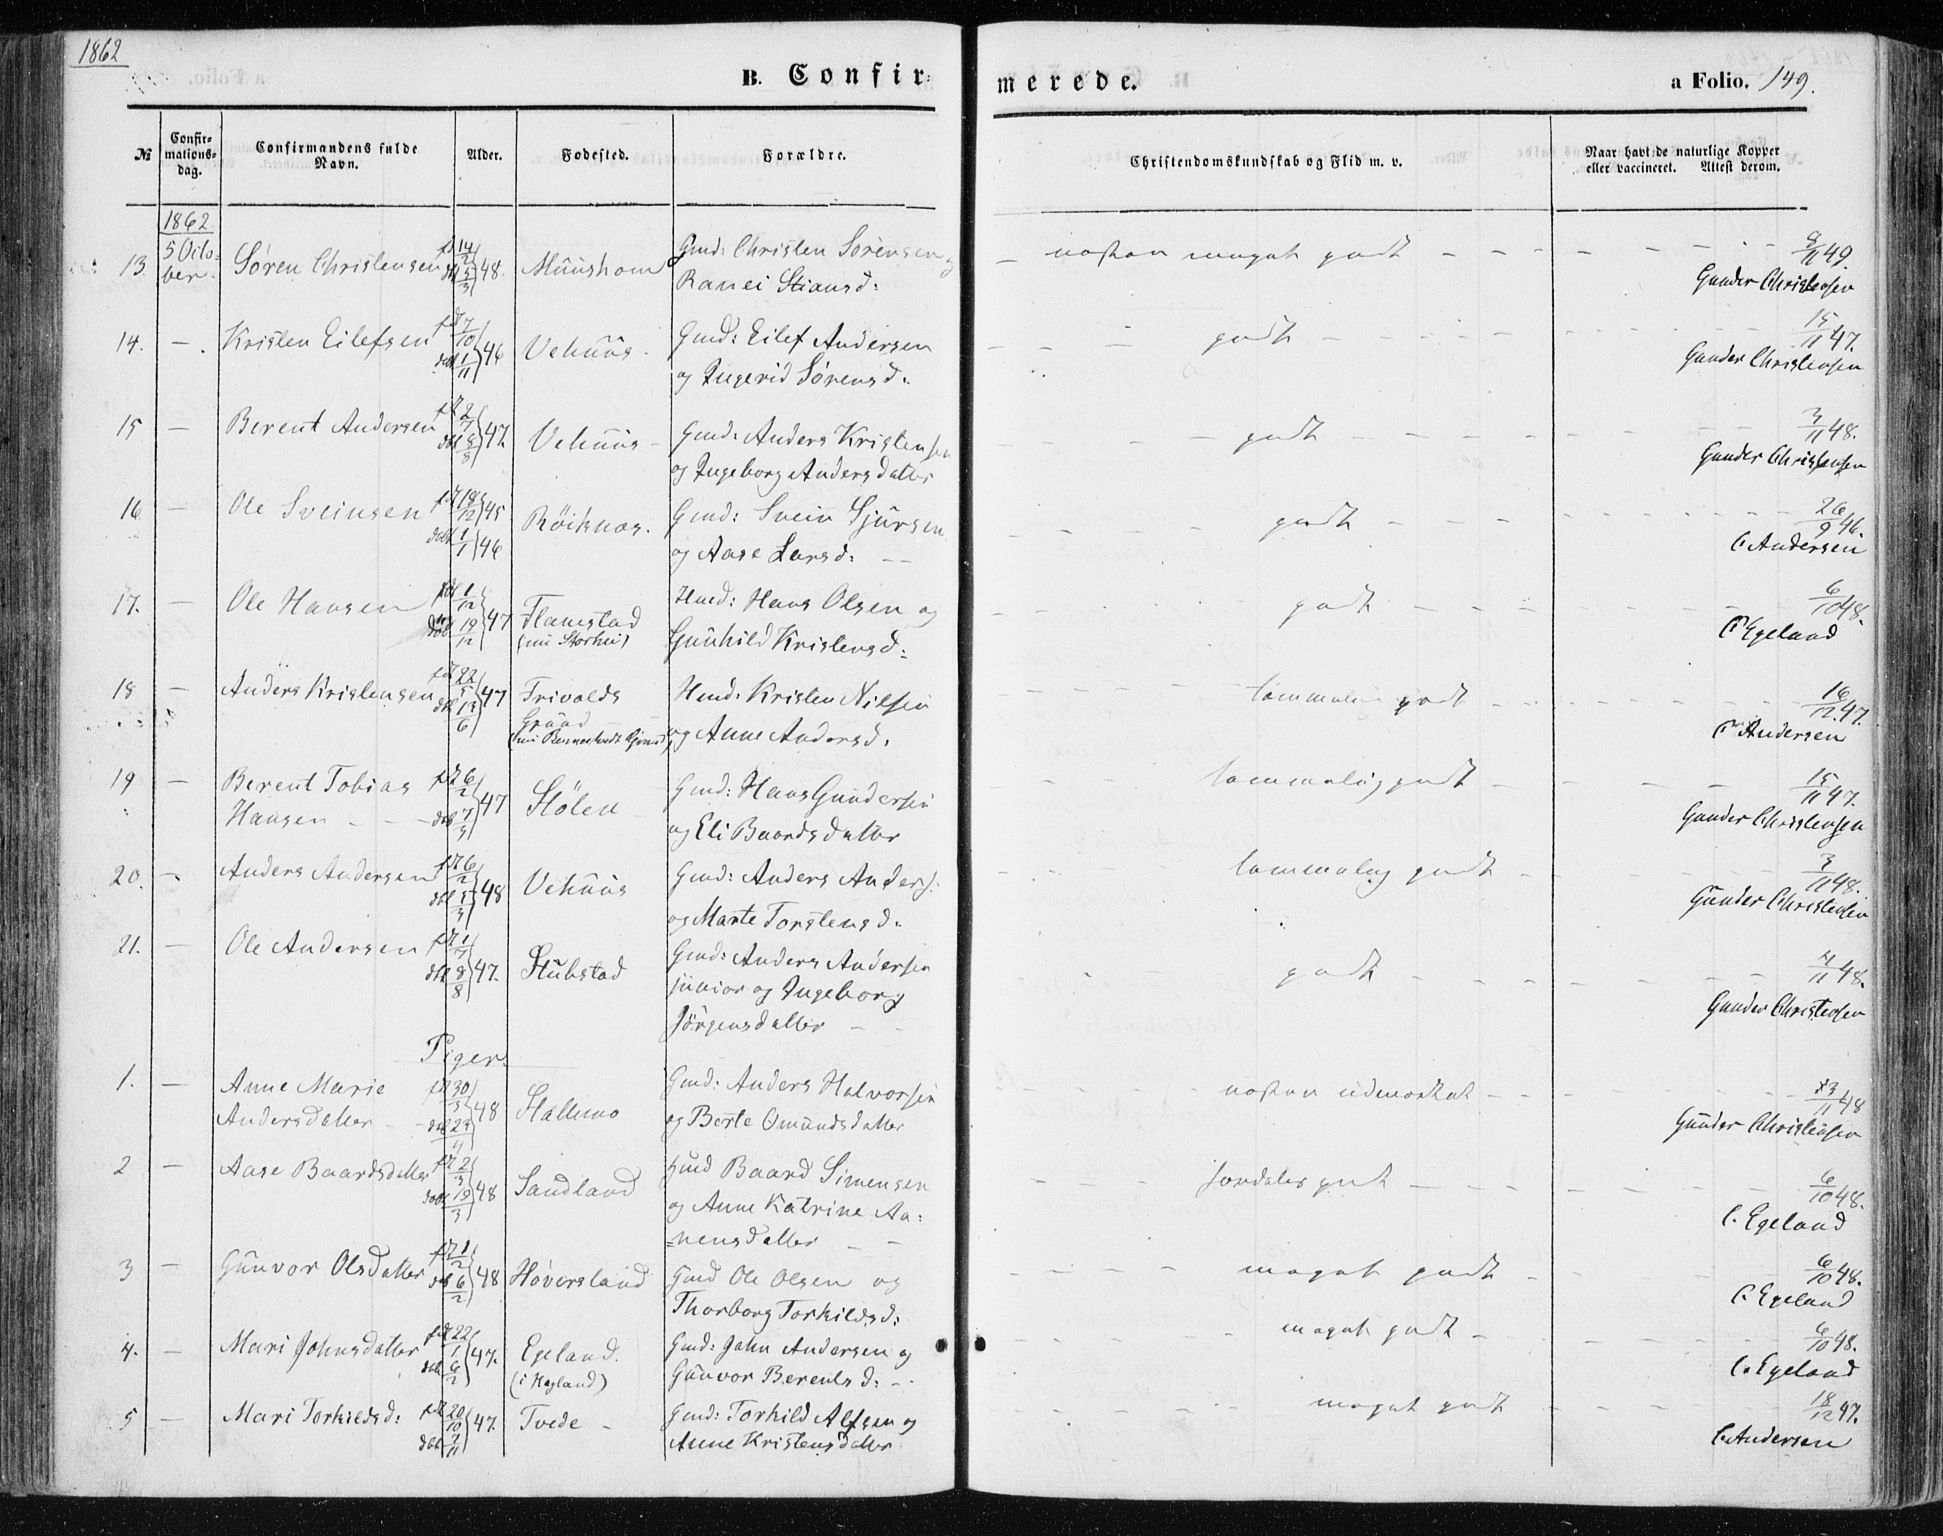 1862
B. Confir=
merede.
a Folio. 149.
№
Confir=
mations=
dag.
Confirmandens fulde
Navn.
Alder.
Fødested.
Forældre.
Christendomskundskab og Flid m. v.
Naar havt de naturlige Kopper
eller vaccineret. Attest derom.
1862
13. 5 Octo=
ber. Søren Christensen 14/2 5/3 48. Muushom Gmd: Christen Sørensen og
Ranei Stiansd: næsten meget godt 49.
Gunder Christensen
14. — Kristen Eilefsen 7/10 1/11 46 Vehuus Gmd: Eilef Andersen
og Ingerid Sørensd. godt 15/11 47.
Gunder Christensen
15 — Berent Andersen 2/7 8/8 47. Vehuus Gmd: Anders Kristensen
og Ingeborg Andersdatter godt 3/11 48.
Gunder Christensen
16 — Ole Sveinsen 18/12 45 Röiknæs. Gmd: Svein Sjursen
døbt 1/1 46 og Aase Larsd: godt 26/9 46.
C Andersen
17. — Ole Hansen 1/12 19/12 47 Flamstad Hmd: Hans Olsen og
Gunhild Kristensd: godt 6/10 48.
C Egeland
18 — Anders Kristensen 22/5 13/6 47 Trivolds
Grund Hmd: Kristen Nilsen
og Anne Andersd. temmelig godt 16/12 47.
C Andersen
19 — Berent Tobias
Hansen 6/2 7/3 47 Stölen Gmd: Hans Gundersen
og Eli Baardsdatter temmelig godt 15/11 47.
Gunder Christensen
20. — Anders Andersen 6/2 5/3 48 Vehuus Gmd: Anders Anders.
og Marte Torstensd. temmelig godt 3/11 48.
Gunder Christensen
21. — Ole Andersen 1/7 8/8 47. Stubstad Gmd: Anders Andersen
junior og Ingeborg
Jörgensdatter godt 4/11 48.
Gunder Christensen
Piger
1. — Anne Marie
Andersdatter 30/3 23/4 48 Stallemo Gmd: Anders Halvorsen
og Berte Omundsdatter næsten udmærket 48
Gunder Christensen
2 — Aase Baardsdatter 2/3 19/3 48 Sandland Baard Simensen
og Anne Katrine Aa=
=nensdatter særdeles godt 6/10 48.
C. Egeland
3 — Gunvor Olsdatter 1/2 6/2 48 Höversland Gmd Ole Olsen og
Thorborg Torkildsd: meget godt 6/10 48.
C. Egeland
4. — Mari Johnsdatter 22/1 6/2 47. Egeland.
(i Hægland) Gmd: John Andersen og
Gunvor Berentsd: meget godt 6/10 48.
C. Egeland
5 — Mari Torkildsd: 20/10 7/11 47. Tvede Gmd: Torkild Alfsen og
Anne Kristensdatter. meget godt 18/12 47.
C. Andersen